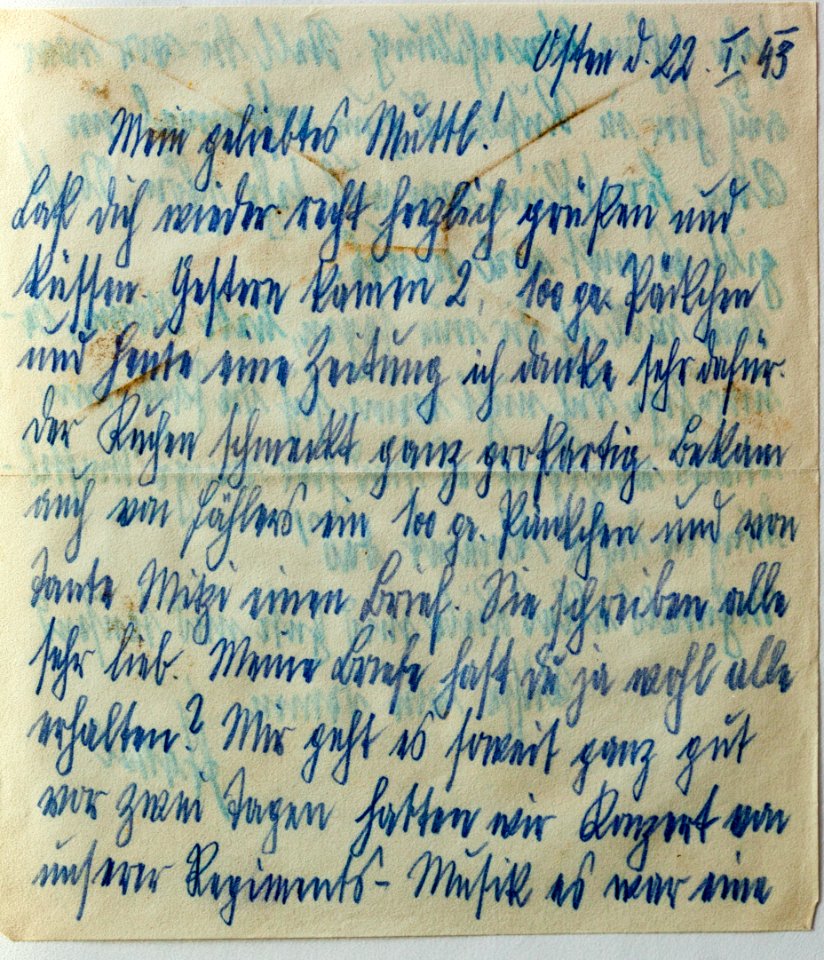 Osten d. 22. I. 43
Mein geliebtes Muttl!
Laß dich wieder recht herzlich grüßen und
küssen. Gestern kamen 2, 100 gr. Päckchen
und heute eine Zeitung ich danke sehr dafür.
der Kuchen schmeckt ganz großartig. Bekam
auch von ein 100 gr. Päckchen und von
Tante Mitzi einen Brief. Sie schreiben alle
sehr lieb. Meine Briefe hast du ja wohl alle
erhalten? Mir geht es soweit ganz gut
vor zwei Tagen hatten wir Konzert von
unserer Regiments-Musik es war eine